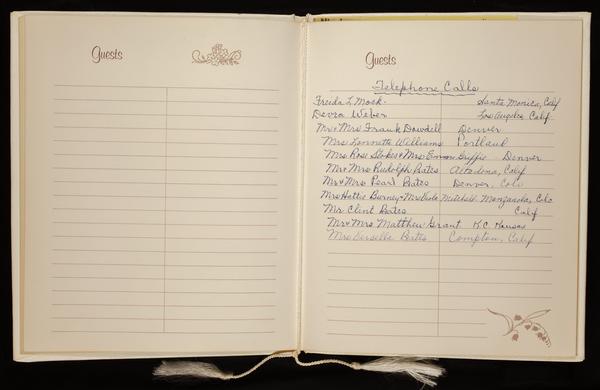 Guests
Guests
Telephone Calls
Freida L Mock. Santa Monica, Calif
Devra Weber Los Angeles Calif.
Mr & Mrs Frank Dowdell Denver
Mrs Lonnetta Williams Portland
Mrs Rose Stokes & Mrs Emma Griffie - Denver
Mr & Mrs Rudolph Bates Altadena, Calif
Mr & Mrs Pearl Bates Denver, Colo
Mrs Hattie Burney & Mrs Viola Mitchell Manzanola, Colo
Mr. Clint Bates Calif
Mr & Mrs Matthew Grant K.C. Kansas
Mrs Bates Compton, Calif